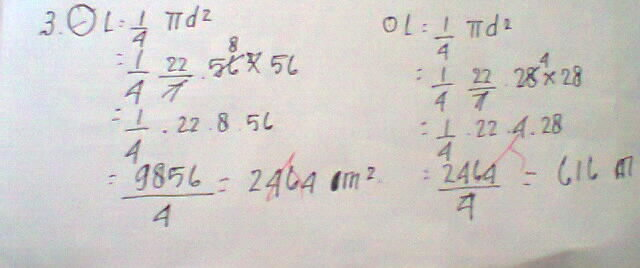 3. ⊖ L = 1/4 πd²
= 1/4 22/7 . 56 8 × 56
= 1/4 . 22 . 8 . 56
= 9856/4 = 2464 m².
O L = 1/4 πd²
= 1/4 22/7 . 28 4 × 28
= 1/4 . 22 . 4 . 28
= 2464/4 = 616 m